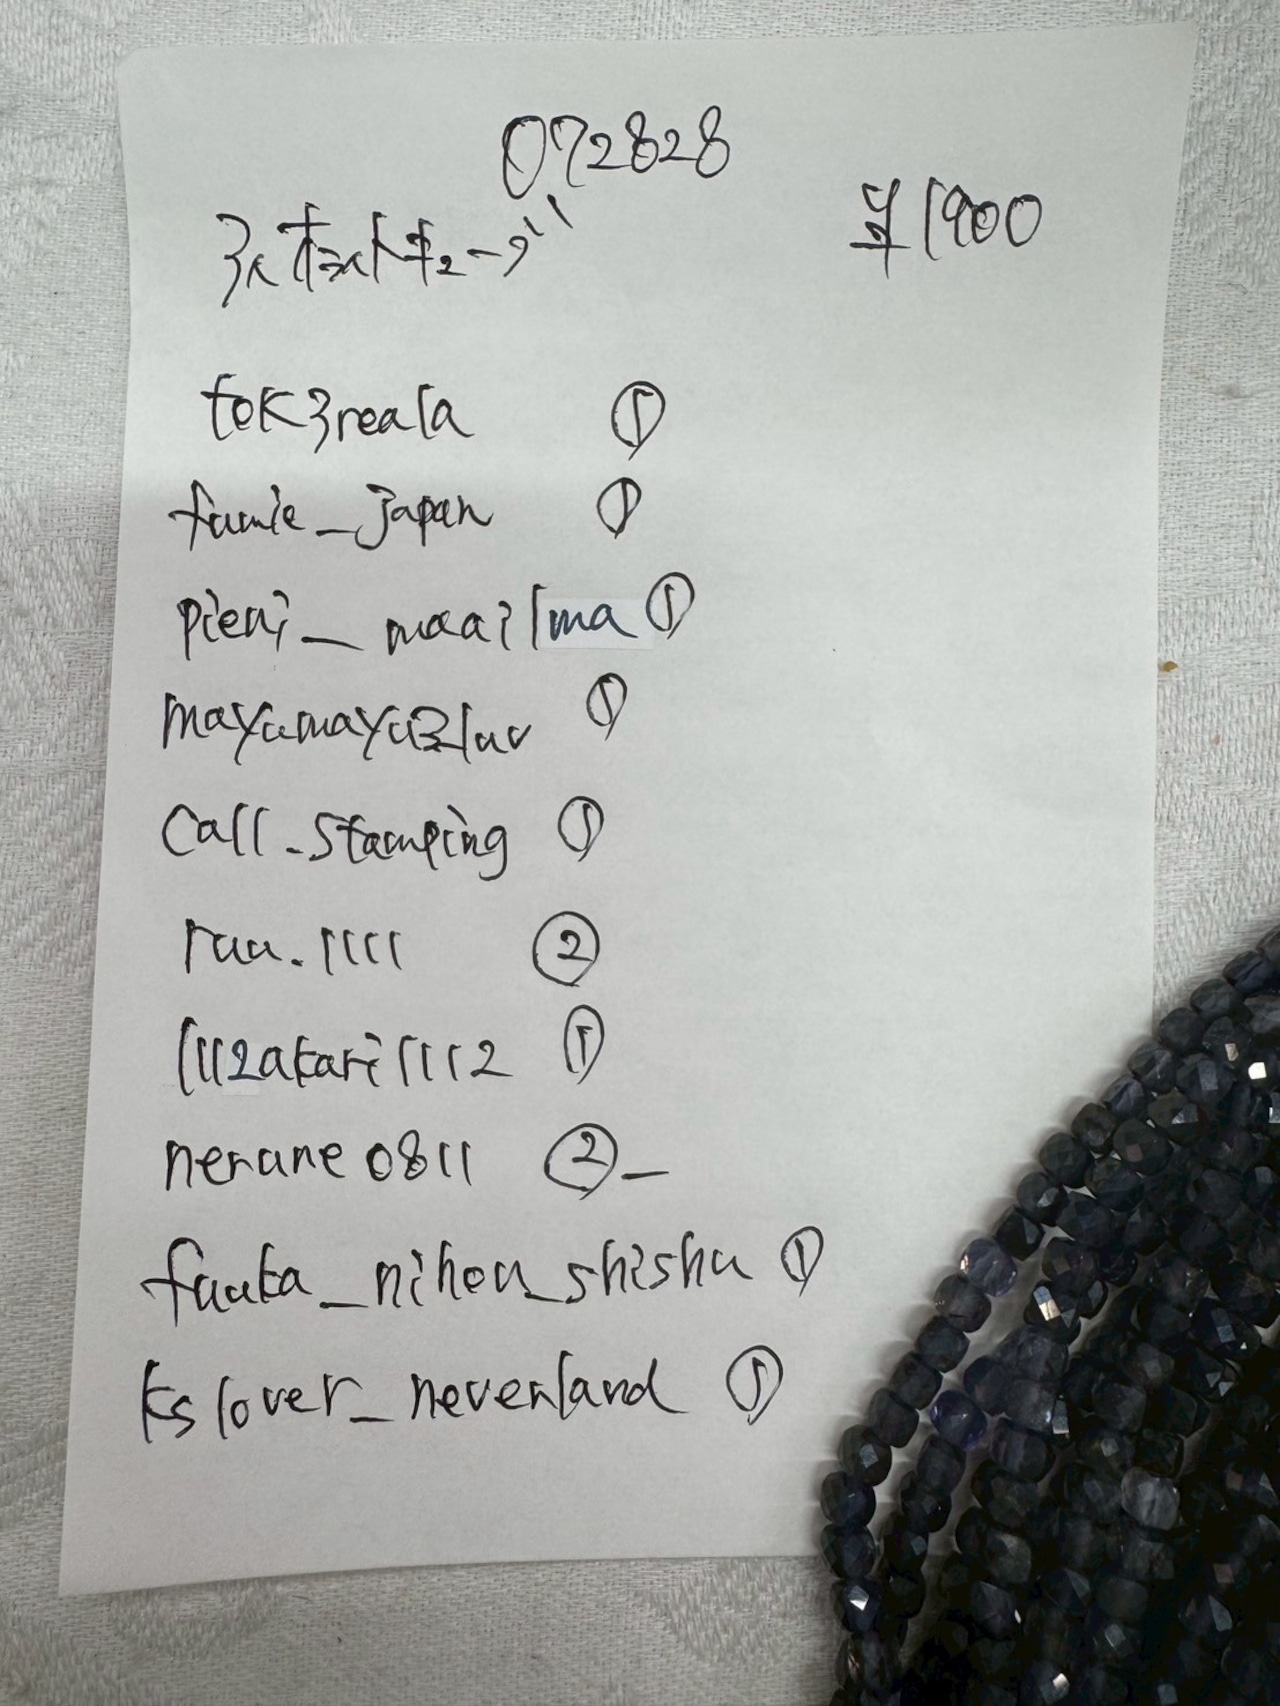 072828
¥1900
tok3reala ①
fumie_japan ①
pieni_maailma ①
mayumayu3luv ①
Call_Stamping ①
ruu.1111 ②
1112akari1112 ①
nerune0811 ②
fuuka_nihon_shishu ①
kslover_neverland ①